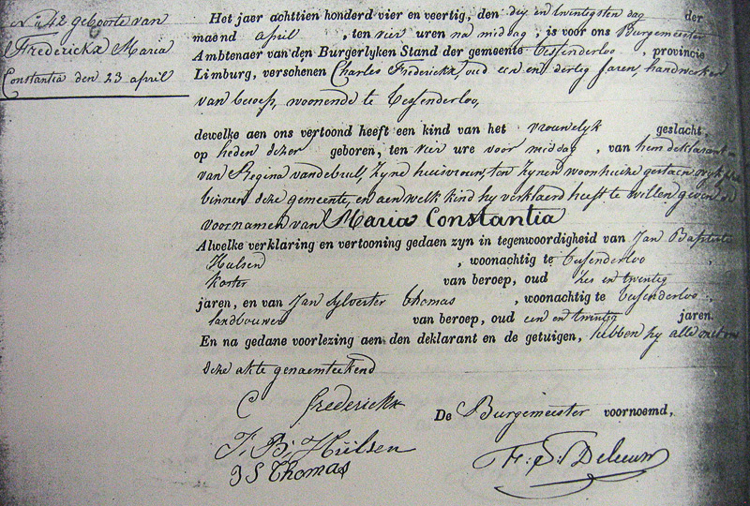 N 42 geboorte van
Frederickx Maria
Constantia den 23 april
Het jaer achttien honderd vier en veertig, den dry en twintigsten dag der
maend april , ten vier uren na middag, is voor ons Burgemeester
Ambtenaer van den Burgerlyken Stand der gemeente Tessenderloo , provincie
Limburg, verschenen Charles Frederickx, oud een en dertig jaren, handwerker
van beroep, woonende te Tessenderloo,
dewelke aen ons vertoond heeft een kind van het vrouwelyk geslacht,
op heden dezer geboren, ten vier ure voor middag , van hem deklarant
van Regina vandebeul, zyne huisvrouw, ten zynen woonhuize gestaen
binnen deze gemeente, en aen welk kind hy verklaerd heeft te willen geven de
voornamen van Maria Constantia
Alwelke verklaring en vertooning gedaen zyn in tegenwoordigheid van Jan Baptiste
Hulsen , woonachtig te Tessenderloo ,
koster van beroep, oud zes en twintig
jaren, en van Jan Sylvester Thomas , woonachtig te Tessenderloo ,
landbouwer van beroep, oud een en twintig jaren.
En na gedane voorlezing aen den deklarant en de getuigen, hebben zy alle met ons
deze akte genaemteekend
C Frederickx
De Burgemeester voornoemd,
J. B. Hülsen
J S Thomas
Deleeuw